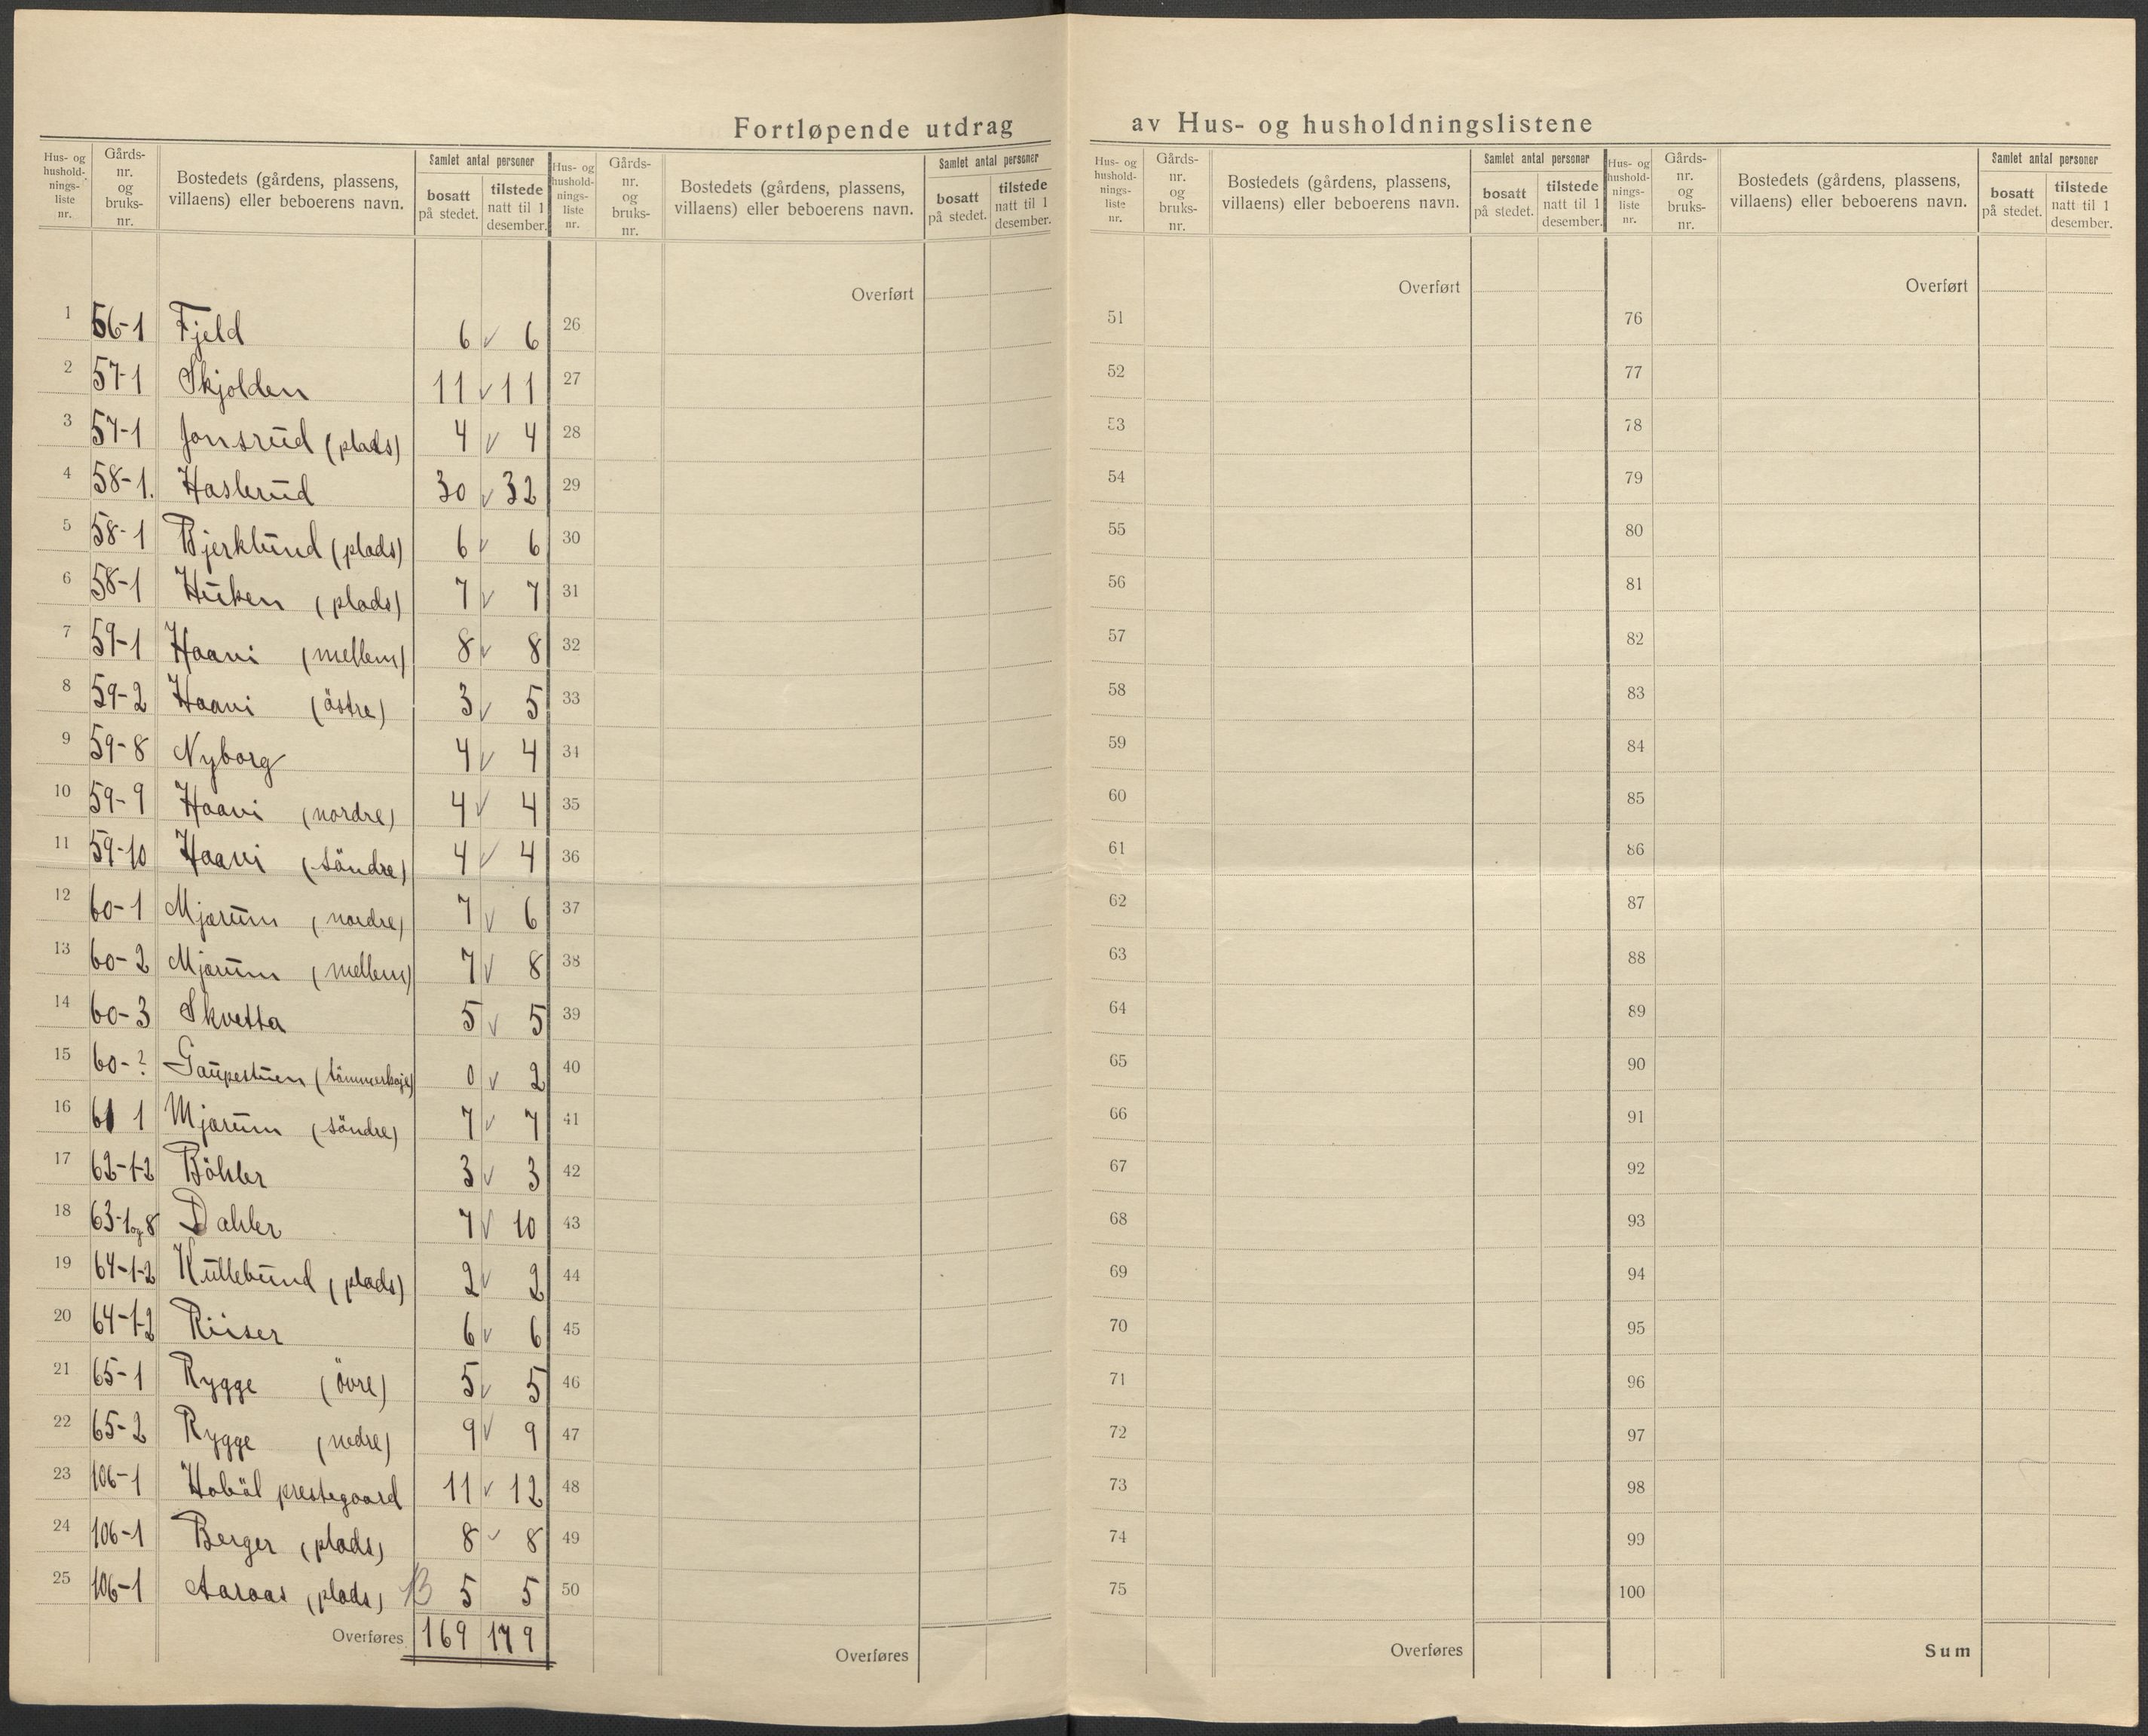 Fortløpende utdrag av Hus- og husholdningslistene
Hus- og hushold-nings-liste nr. | Gårds-nr. og bruks-nr. | Bostedets (gårdens, plassens, villaens) eller beboerens navn. | Samlet antal personer | bosatt på stedet. | tilstede natt til 1 desember.
1 56-1 Fjeld 6 ✓ 6
2 57-1 Skjolden 11 ✓ 11
3 57-1 Jonsrud (plads) 4 ✓ 4
4 58-1. Haslerud 30 ✓ 32
5 58-1 Bjerklund (plads) 6 ✓ 6
6 58-1 Huken (plads) 7 ✓ 7
7 59-1 Haavi (mellem) 8 ✓ 8
8 59-2 Haavi (östre) 3 ✓ 5
9 59-8 Nyborg 4 ✓ 4
10 59-9 Haavi (nordre) 4 ✓ 4
11 59-10 Haavi (söndre) 4 ✓ 4
12 60-1 Mjærum (nordre) 7 ✓ 6
13 60-2 Mjærum (mellem) 7 ✓ 8
14 60-3 Skvetta 5 ✓ 5
15 60-? Gaupestuen (tömmerkoje) 0 ✓ 2
16 61 1 Mjærum (söndre) 7 ✓ 7
17 62-1-2 Böhler 3 ✓ 3
18 63-1og8 Dahler 7 ✓ 10
19 64-1-2 Kullebund (plads) 2 ✓ 2
20 64-1-2 Riiser 6 ✓ 6
21 65-1 Rygge (övre) 5 ✓ 5
22 65-2 Rygge (nedre) 9 ✓ 9
23 106-1 Hobøl prestegaard 11 ✓ 12
24 106-1 Berger (plads) 8 ✓ 8
25 106-1 Aaraas (plads) 5 5
Overføres 169 179
Hus- og hushold-nings-liste nr. | Gårds-nr. og bruks-nr. | Bostedets (gårdens, plassens, villaens) eller beboerens navn. | Samlet antal personer | bosatt på stedet. | tilstede natt til 1 desember.
Overført
26
27
28
29
30
31
32
33
34
35
36
37
38
39
40
41
42
43
44
45
46
47
48
49
50
Overføres
Hus- og hushold-nings-liste nr. | Gårds-nr. og bruks-nr. | Bostedets (gårdens, plassens, villaens) eller beboerens navn. | Samlet antal personer | bosatt på stedet. | tilstede natt til 1 desember.
Overført
51
52
53
54
55
56
57
58
59
60
61
62
63
64
65
66
67
68
69
70
71
72
73
74
75
Overføres
Hus- og hushold-nings-liste nr. | Gårds-nr. og bruks-nr. | Bostedets (gårdens, plassens, villaens) eller beboerens navn. | Samlet antal personer | bosatt på stedet. | tilstede natt til 1 desember.
Overført
76
77
78
79
80
81
82
83
84
85
86
87
88
89
90
91
92
93
94
95
96
97
98
99
100
Sum